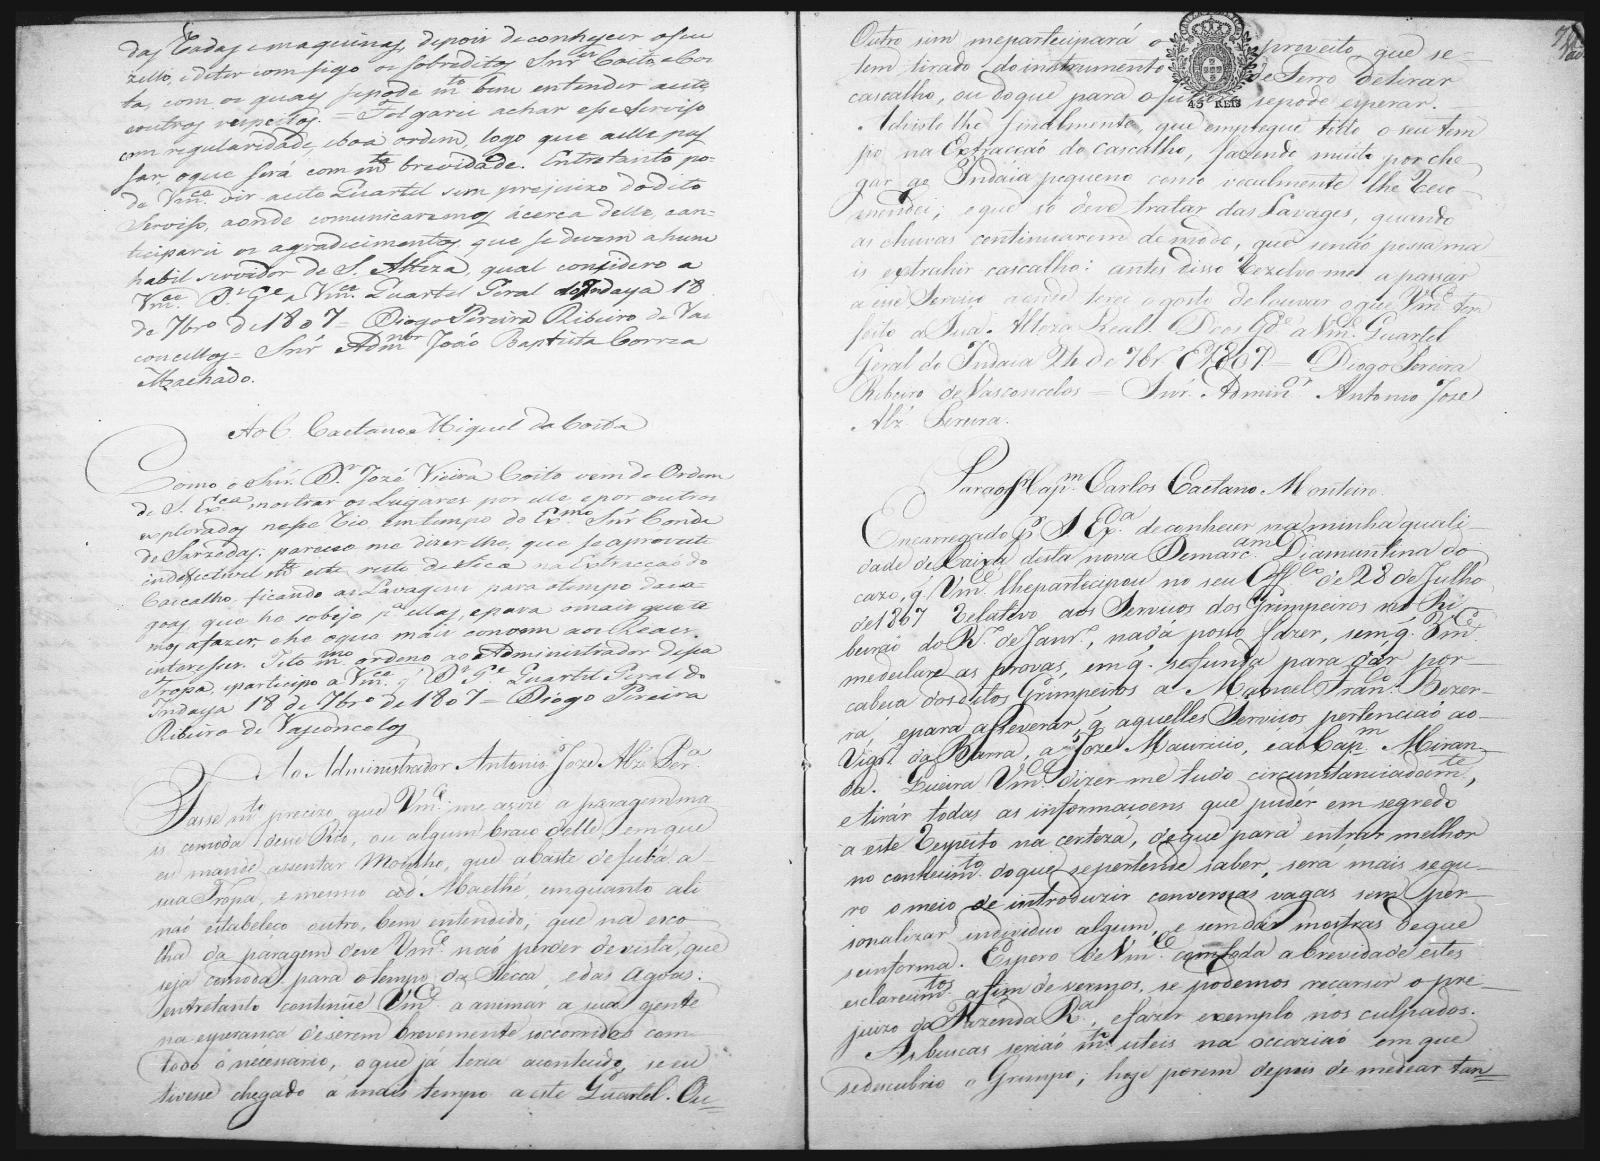 das Tadas e maquinas, depois de conheçer o seu
zello, e deter com sigo os sobreditos Snr.es Coito, e Cos
ta, com os quaes se pode m.to bem entender a este,
e outros respeitos. = Folgarei achar esse Serviso
com regularidade, e boa ordem, logo que a elle pas
sar, o que será com m.ta brevidade. Entretanto po-
de Vm.ce vir a este Quartel sem prejuizo do dito
Serviso, aonde comunicaremos ácerca delle, e an-
ticiparei os agradicimentos, que se devem a hum
habil servidor de S. Alteza, qual considero a
Vm.ce D.s G.e a Vm.ce Quartel Geral do Indaya 18
de 7bro de 1807 = Diogo Pereira Ribeiro de Vas
concellos = Snr. Adm.or João Baptista Correa
Machado.
Ao C. Caetano Miguel da Costa
Como o Snr. D.r José Vieira Coito vem de Ordem
de S. Ex.cia mostrar os Lugares por elle e por outros
explorados nesse Rio, em tempo do Ex.mo Snr. Conde
de Sarzedas; pareceo me dizer lhe, que se aproveite
indefectivel m.te este resto de seca na Extracção do
Cascalho, ficando as Lavagens para o tempo das a-
goas, que he sobejo p.a ellas, e para o mais que te
mos a fazer, he o que mais convem aos Reaes
interesses. Isto m.mo ordeno ao Administrador dessa
Tropa, e participo a Vm.ce q' D.s G.e Quartel Geral do
Indaya 18 de 7bro de 1807 = Diogo Pereira
Ribeiro de Vasconcelos
Ao Administrador Antonio Joze Alz. Per.a
Fasse m.to precizo que Vm.ce me avize a paragem ma
is comoda desse Rio, ou algum braço delle, em que
eu mande assentar Moinho, que abaste de fubá a
sua Tropa, e mesmo a de Maethé, em quanto ali
naõ estabeleço outro, bem entendido, que na esco
lha da páragem deve Vm.ce naõ perder de vista, que
seja comoda para o tempo da Secca, e das Agoas:
entretanto continúe Vm.ce a animar a sua gente
na esperança de serem brevemente soccorridos com
todo o necessario, o que já teria acontecido, se eu
tivesse chegado á mais tempo a este Quartel. Ou=
Outro sim me participará o proveito que se-
tem tirado do instrumento de Ferro de tirar
cascalho, ou do que para o futuro se pode esperar.
45 REIS
Advirto lhe finalmente, que empregue todo o seu tem
po na Extracçaõ do cascalho, fazendo muito por che
gar ao Indaia pequeno como vocalmente lhe reco-
mendei; e que só deve tratar das Lavages, quando
as chuvas continuarem de modo, que senaõ possa ma
is extrahir cascalho: antes disso Rezolvo me a passar
a esse Serviço aonde terei o gosto de louvar o que Vm.ce tem
feito a Sua Alteza Real. Deos G.de a Vm.ce Quartel
Geral do Indaia 24 de 7br.o de 1807. = Diogo Pereira
Ribeiro de Vasconcelos = Snr. Admin.or Antonio José
Alz. Pereira.
Para o S.r Cap.m Carlos Caetano Monteiro.
Encarregado p.r S Ex.a de conhecer na minha quali-
dade de Caixa desta nova Demarc.am Diamantina do
cazo, q. Vm.ce lhe participou no seu Off.co de 28 de Julho
de 1807 Relativo aos Servicos dos Grimpeiros no Ri
beiraõ do R.o de Janr.o, nada posso fazer, sem q. Vm.ce
me declare as provas, em q. se funda para dar por
cabeca dos ditos Grimpeiros a Manoel Fran.co Bezer-
ra, e para asseverar, q. aquelles Servicos pertenciaõ ao
Vig.o da Barra, a Joze Mauricio, e ao Cap.m Miran-
da. Queira Vm.ce dizer me tudo circunstanciadam.te,
e tirár todas as informaçoens que pudér em segredo
a este Respeito na certeza, de que para entrar melhor
no conhecim.to do que se pertende saber, será mais segu-
ro o meio de introduzir conversas vagas sem per-
sonalizar individuo algum, e sem dar mostras de que
se informa. Espero de Vm.ce com toda a brevidade estes
esclarecim.tos a fim de vermos, se podemos recarsir o pre-
juizo da Fazenda R.al, e fazer exemplo nos culpados.
As buscas seriaõ m.to uteis na occaziaõ em que
se descubrio o Grimpo; hoje porem depois de medear tan=